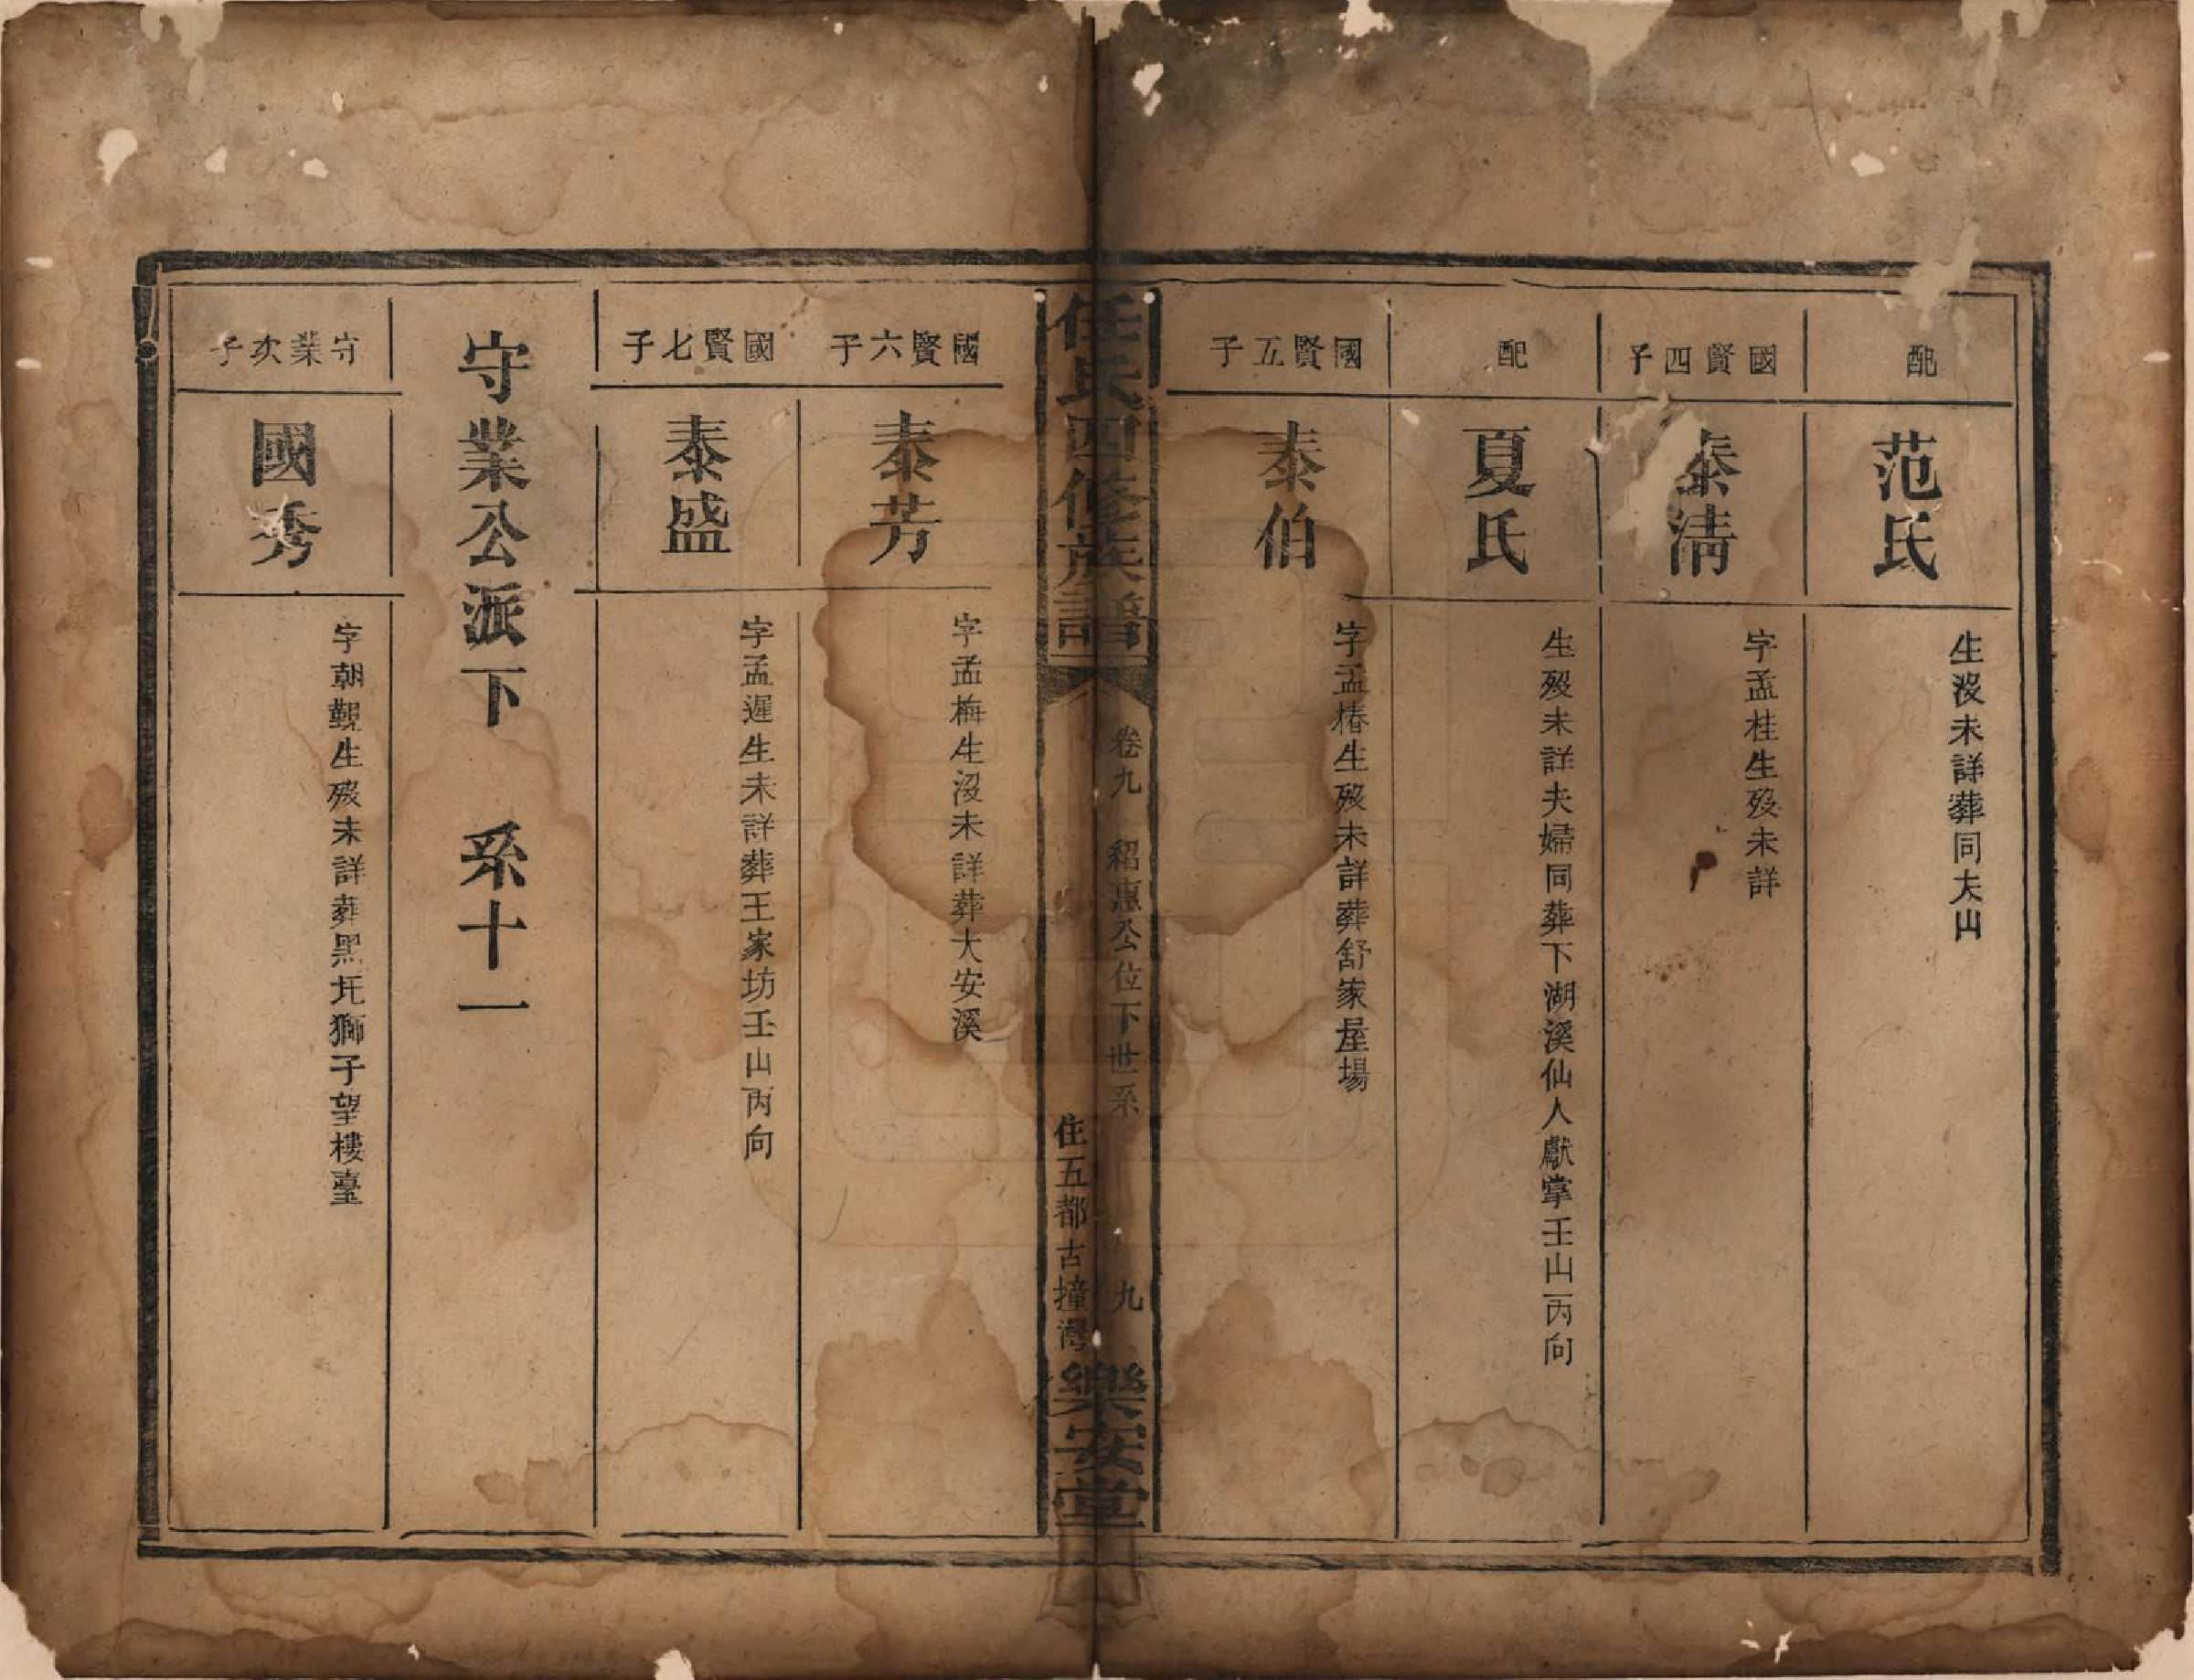 配
范氏
生沒未詳葬同夫山
國賢四子
泰清
字孟桂生歿未詳
配
夏氏
生歿未詳夫婦同葬下湖溪仙人獻掌壬山丙向
國賢五子
泰伯
字孟椿生歿未詳葬舒家屋場
任氏四修族譜
卷九 紹惠公位下世系
九
住五都古撞灣
樂安堂
國賢六子
泰芳
字孟梅生沒未詳葬大安溪
國賢七子
泰盛
字孟遲生未詳葬王家坊壬山丙向
守業公派下 系十一
守業次子
國秀
字朝覲生歿未詳葬黑圫獅子望樓臺